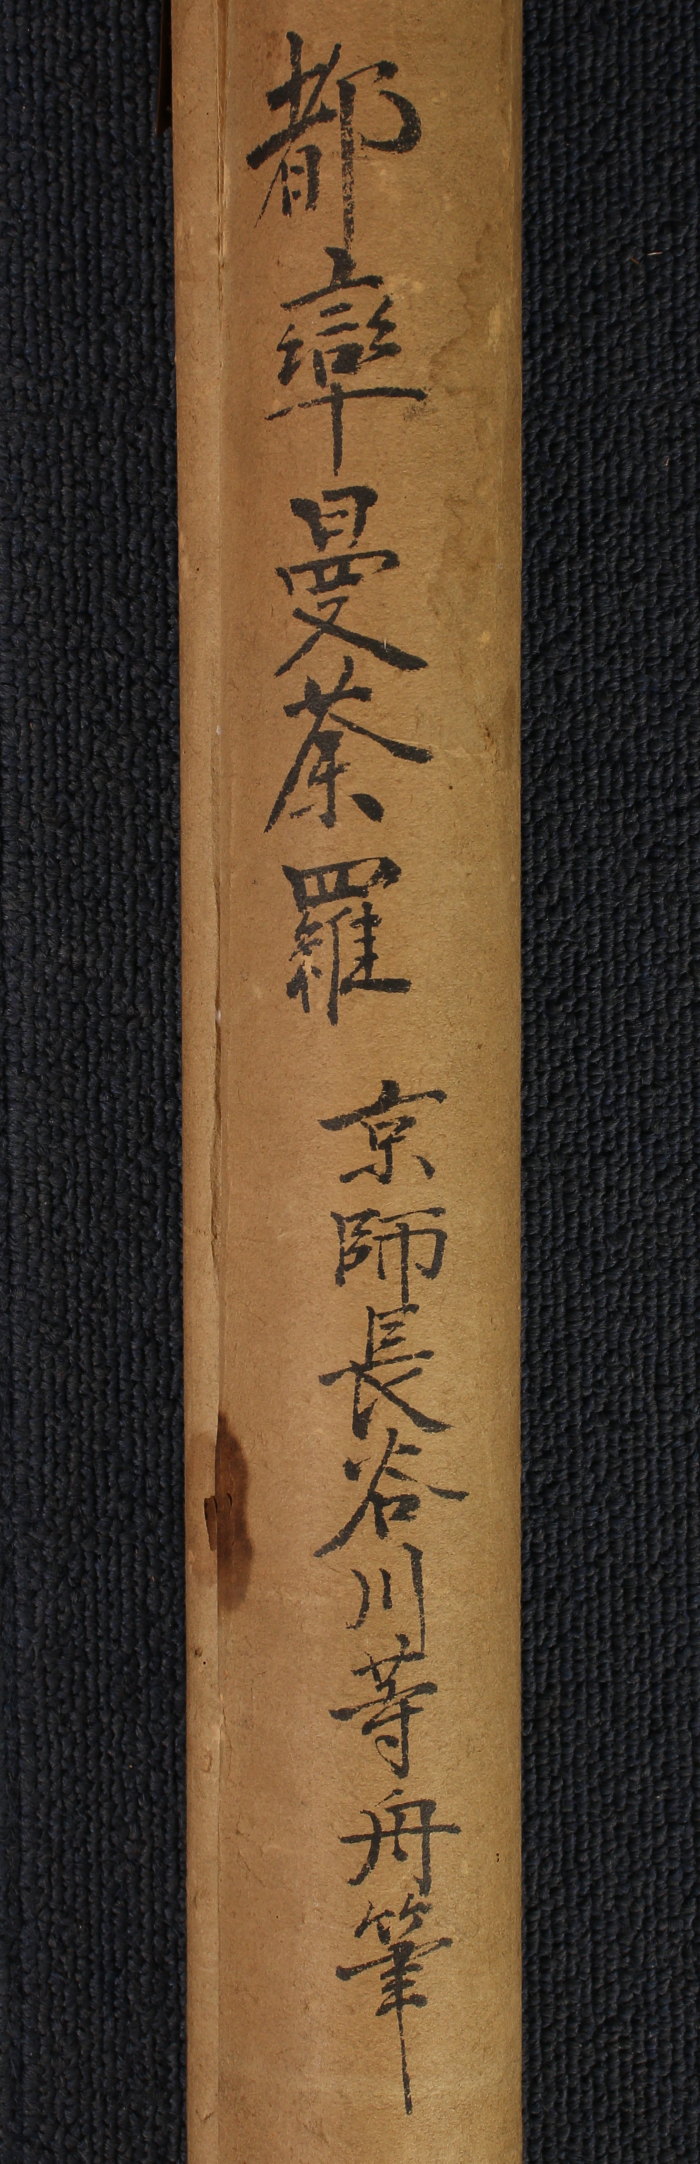 都率曼荼羅 京師長谷川等舟筆